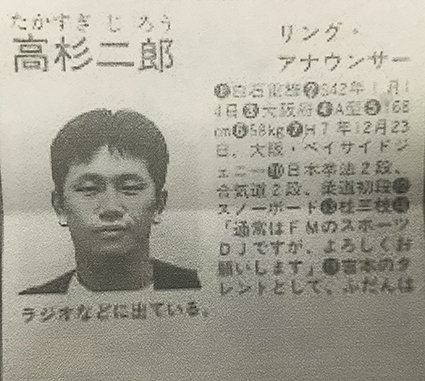 たかすぎ じ ろう
高杉二郎
リング・
アナウンサー
❷S42年1月1
4日❸大阪府❹A型❺168
cm❻58kg❼H7年12月23
日、大阪・ベイサイドジ
ェニー❿日本拳法2段、
合気道2段、柔道初段⓬
スノーボード⓭桂三枝⓮
「通常はFMのスポーツ
DJですが、よろしくお
願いします」⓯吉本のタ
レントとして、ふだんは
ラジオなどに出ている。